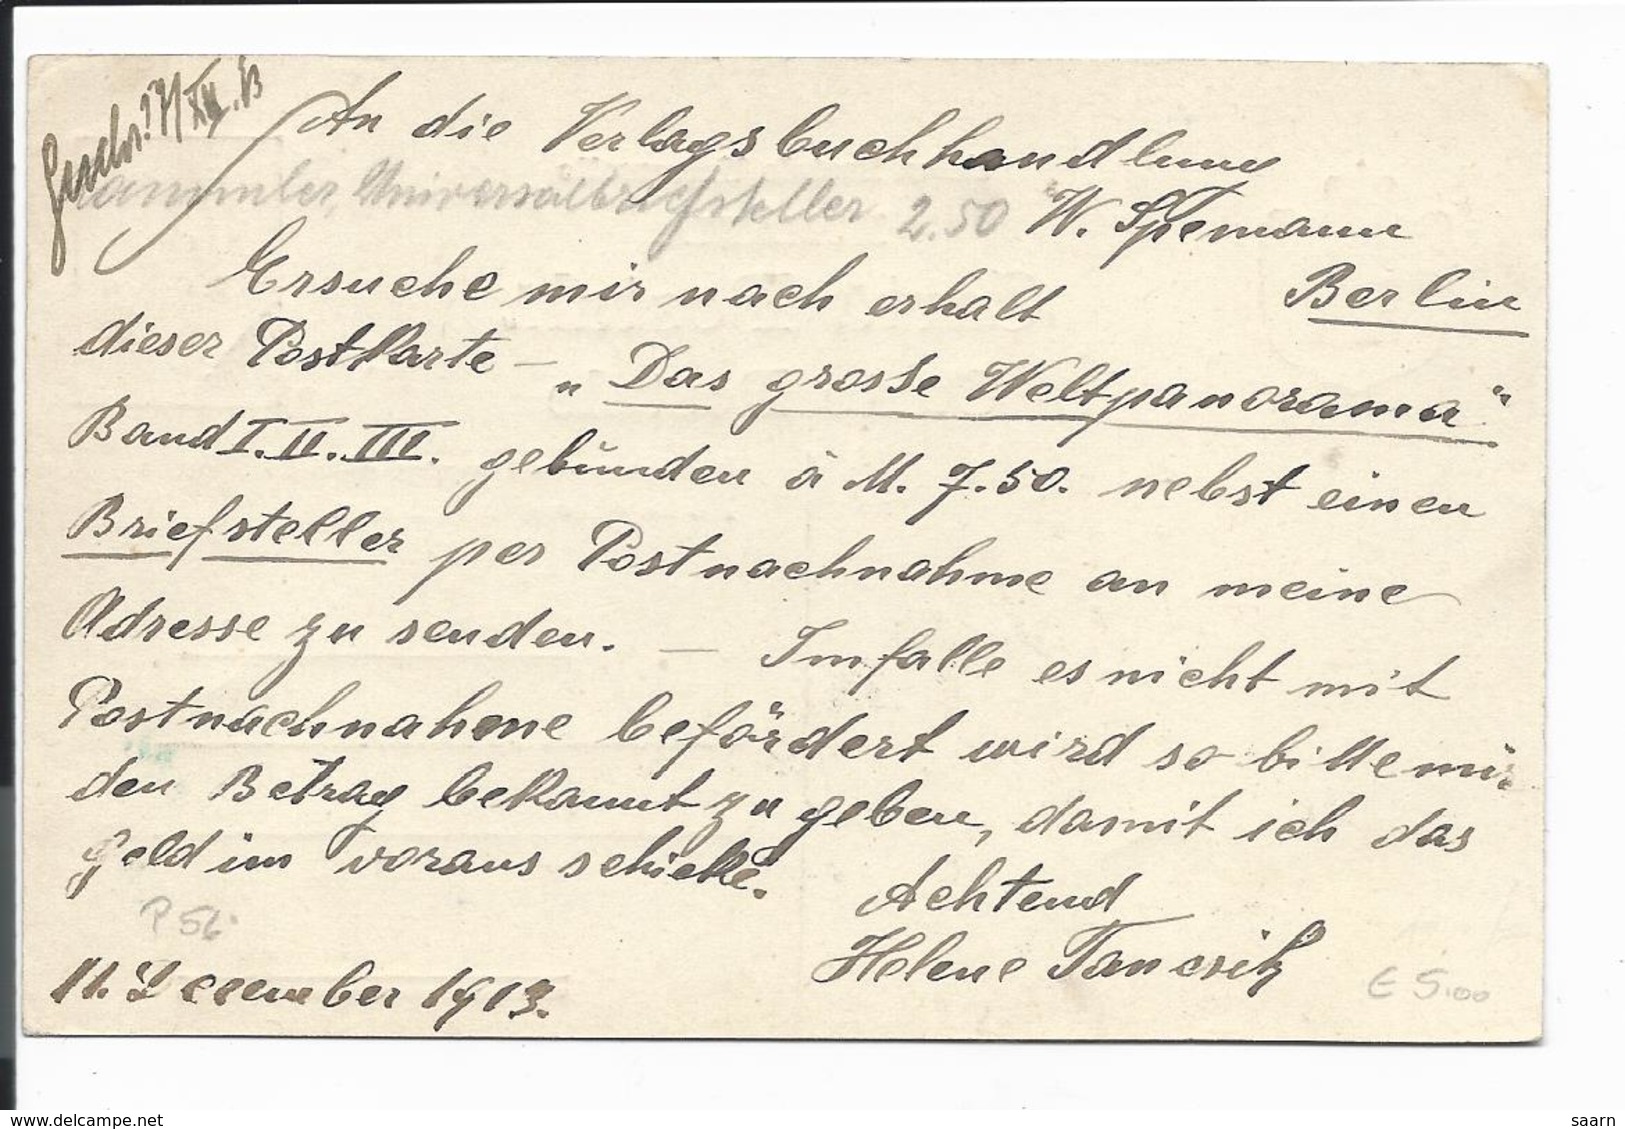 17/XII.13
An die Verlagsbuchhandlung
Sammler, Universalbriefsteller 2.50
W. Spemann
Berlin
Ersuche mir nach erhalt
dieser PostKarte – „Das grosse Weltpanorama"
Band I. II. III. gebunden à M. 7.50. nebst einen
Briefsteller per Postnachnahme an meine
Adresse zu senden. — Imfalle es nicht mit
Postnachnahme befördert wird so bitte mir
den Betrag beKannt zu geben, damit ich das
Geld im voraus schicke.
Achtend
Helene Tancsik
P 56.
11. December 1913.
€ 5.00
www.delcampe.net
saarn